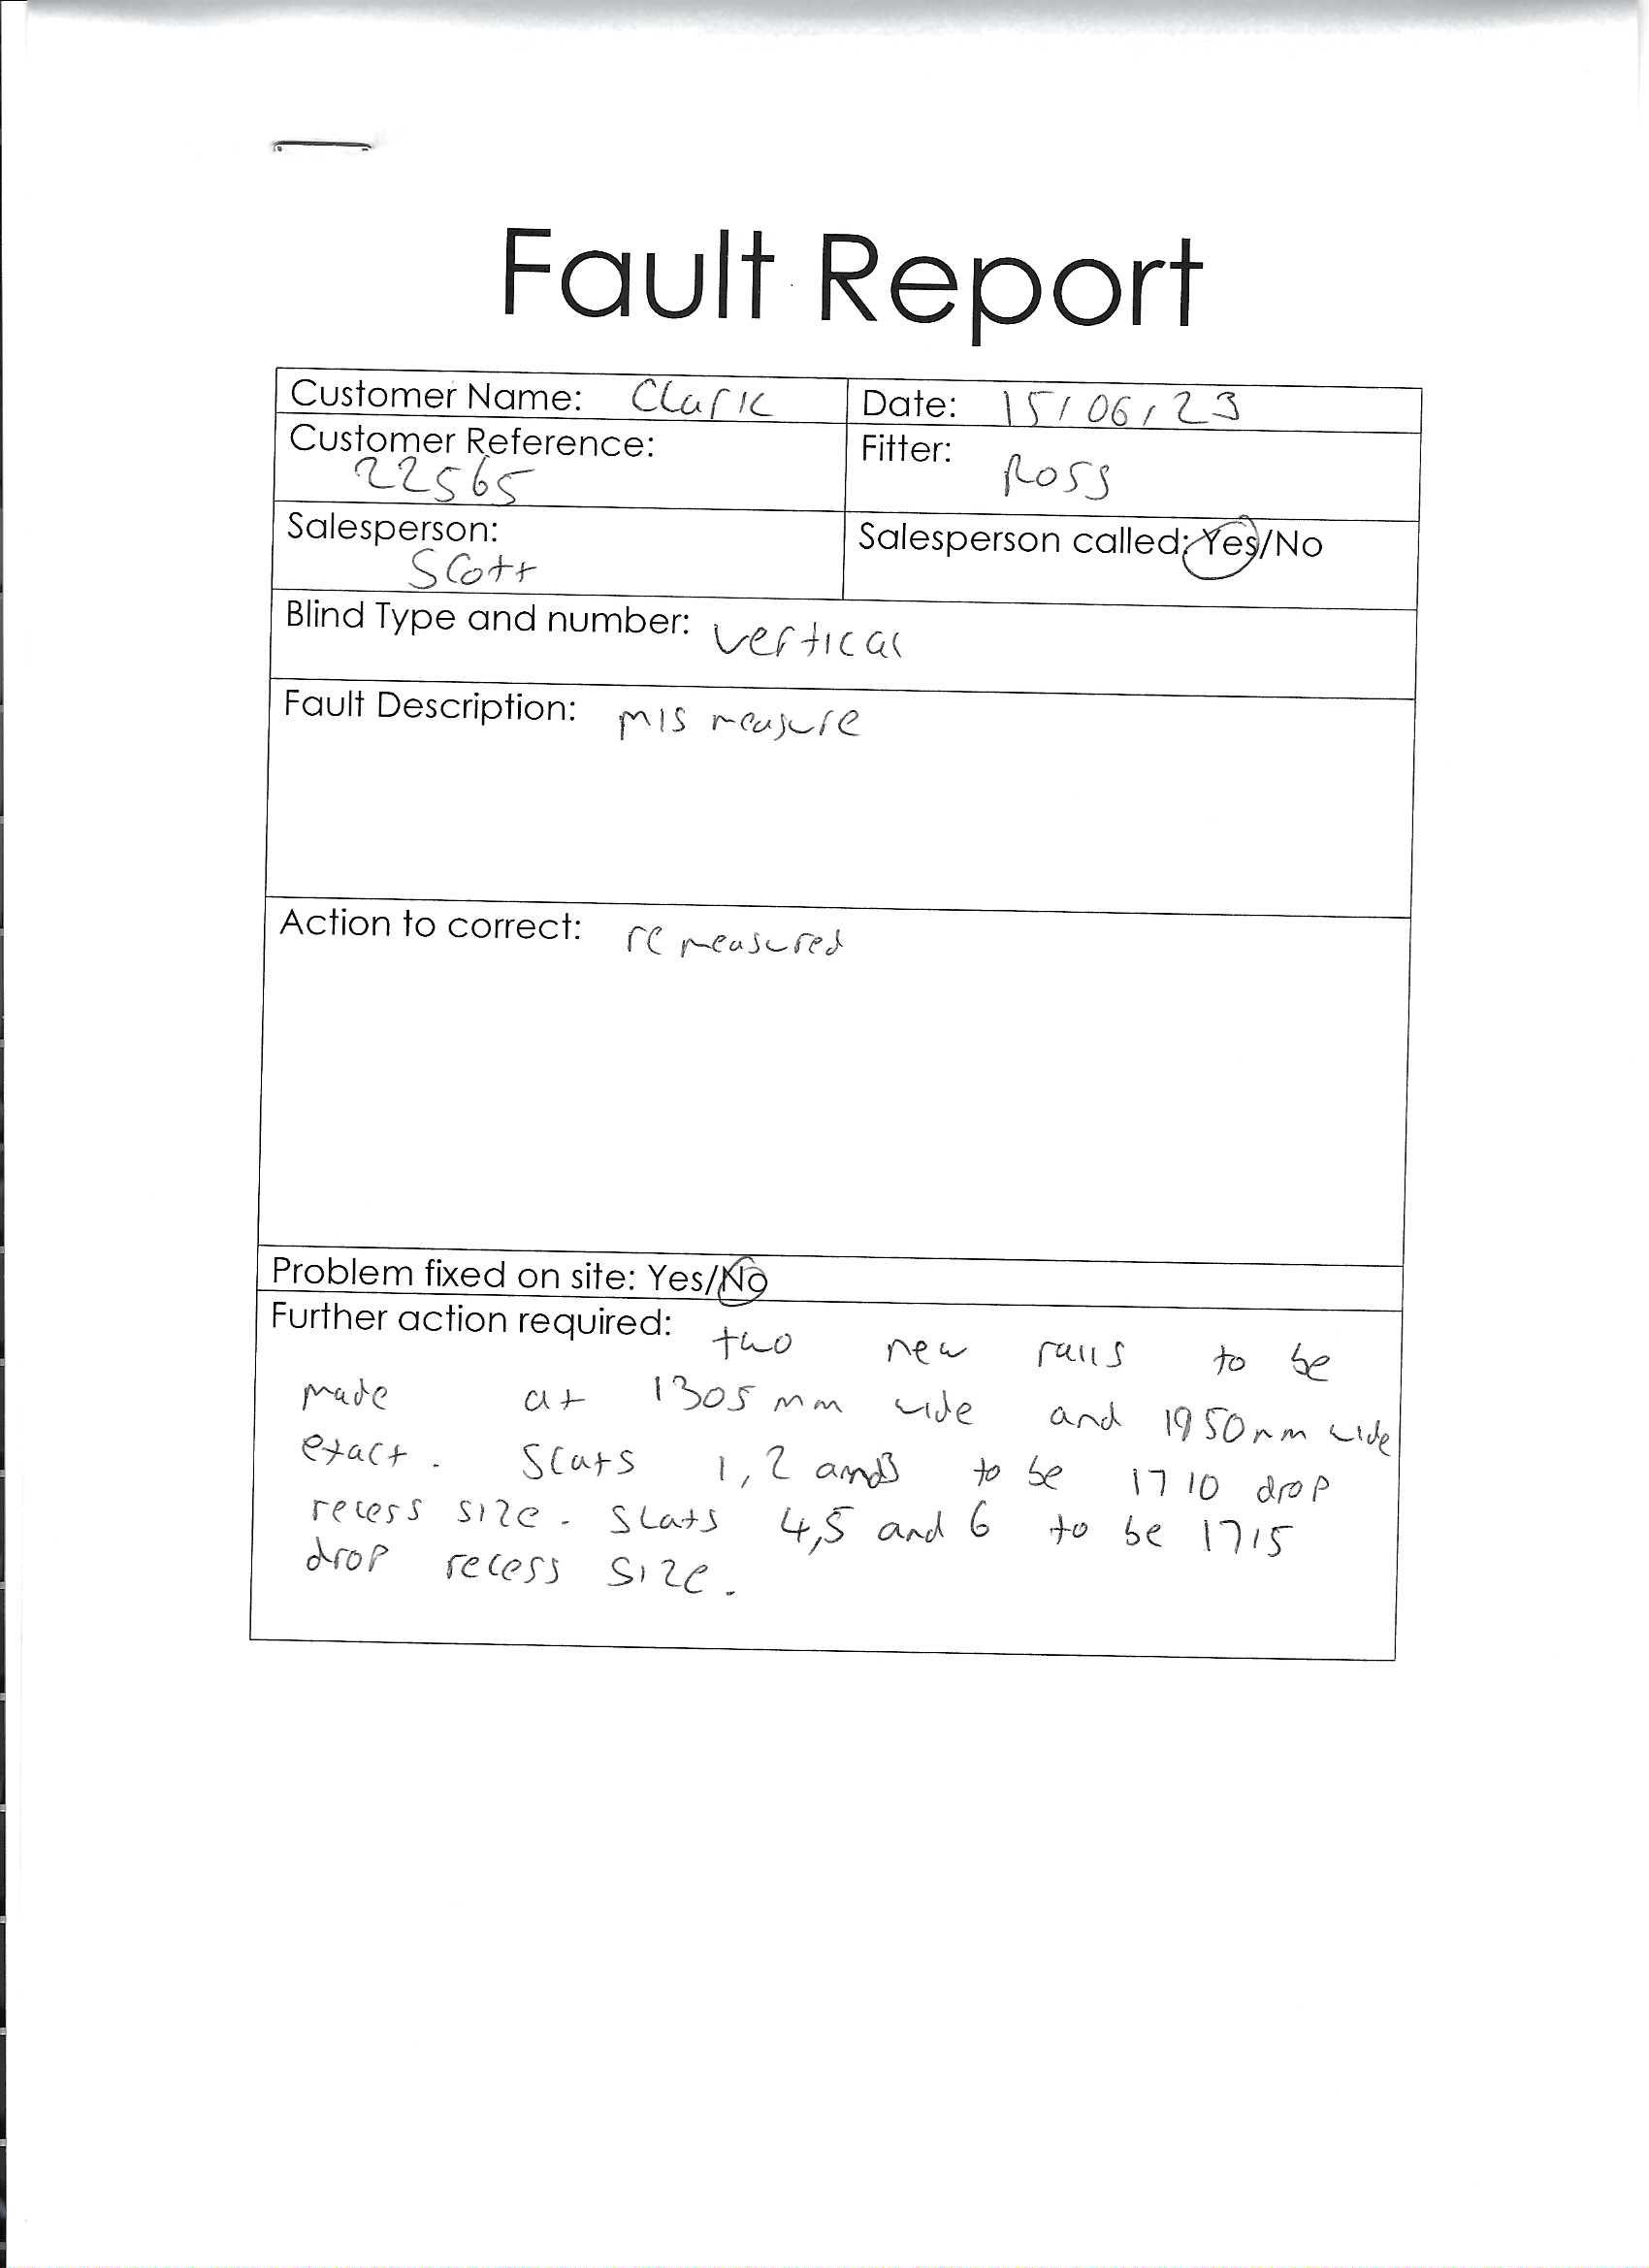 Fault Report
Customer Name: Clark
Date: 15/06/23
Customer Reference:
22565
Fitter: Ross
Salesperson:
Scott
Salesperson called: Yes/No
Blind Type and number: vertical
Fault Description: mis measure
Action to correct: re measured
Problem fixed on site: Yes/No
Further action required: two new rails to be
made at 1305mm wide and 1950mm wide
exact. Slats 1, 2 and 3 to be 1710 drop
recess size. Slats 4,5 and 6 to be 1715
drop recess size.